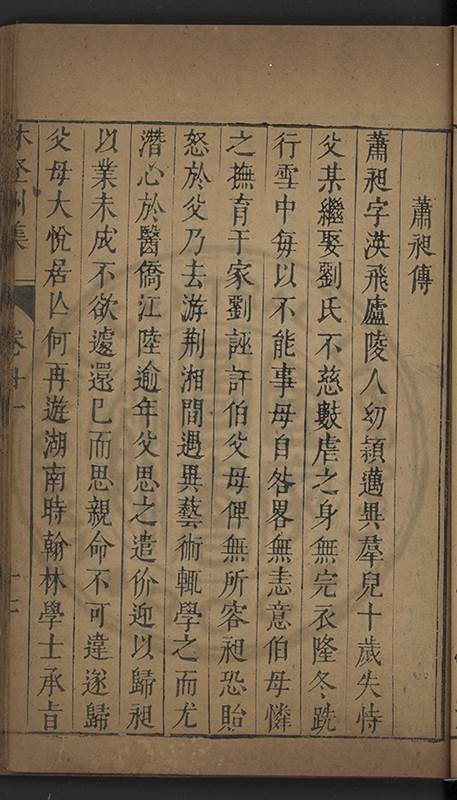 蕭昶傳
蕭昶字漢飛廬陵人幼穎邁異羣兒十歲失恃
父某繼娶劉氏不慈數虐之身無完衣隆冬跣
行雪中每以不能事母自咎畧無恚意伯母憐
之撫育于家劉誣訐伯父母俾無所容昶恐貽
怒於父乃去游荆湘間遇異藝術輒學之而尤
潛心於醫僑江陵逾年父思之遣价迎以歸昶
以業未成不欲遽還已而思親命不可違遂歸
父母大悅居亾何再遊湖南時翰林學士承旨
集 卷十一